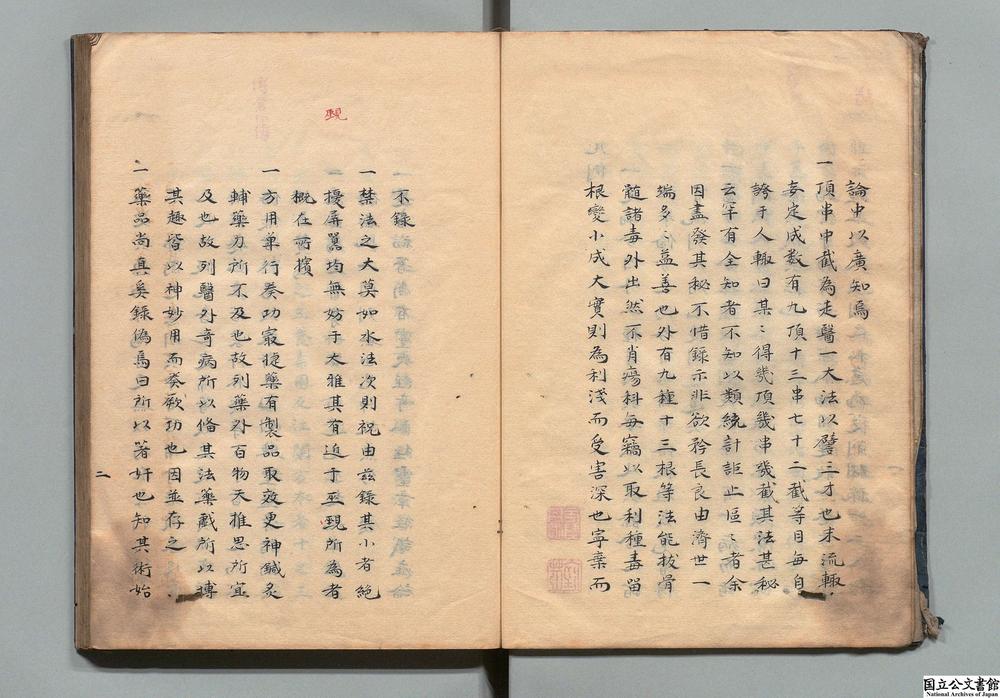 論中以廣知焉
一頂串中截為走醫一大法以譬三才也末流輙
妄定成数有九頂十三串七十二截等目每自
誇于人輙曰某〻得幾頂幾串幾截其法甚秘
云罕有全知者不知以類統計詎止區〻者余
因盡發其秘不惜録示非欲矜長良由濟世一
端多〻益善也外有九種十三根等法能拔骨
髓諸毒外出然不肖瘍科每竊以取利種毒留
根變小成大實則為利淺而受害深也寧棄而
不録
一禁法之大莫如水法次則祝由兹録其小者絶
擾屏嚣均無妨于大雅其有迫于巫現所為者
覡
概在所擯
一方用單行奏功寂捷藥有製品取效更神鍼灸
輔藥力所不及也故列藥外百物天推思所宜
及也故列醫外竒病所以脩其法藥戲所以摶
其趣皆以神妙用而發厥功也因並存之
一藥品尚真奚録偽焉曰所以著奸也知其術始
二
国立公文書館
National Archives of Japan